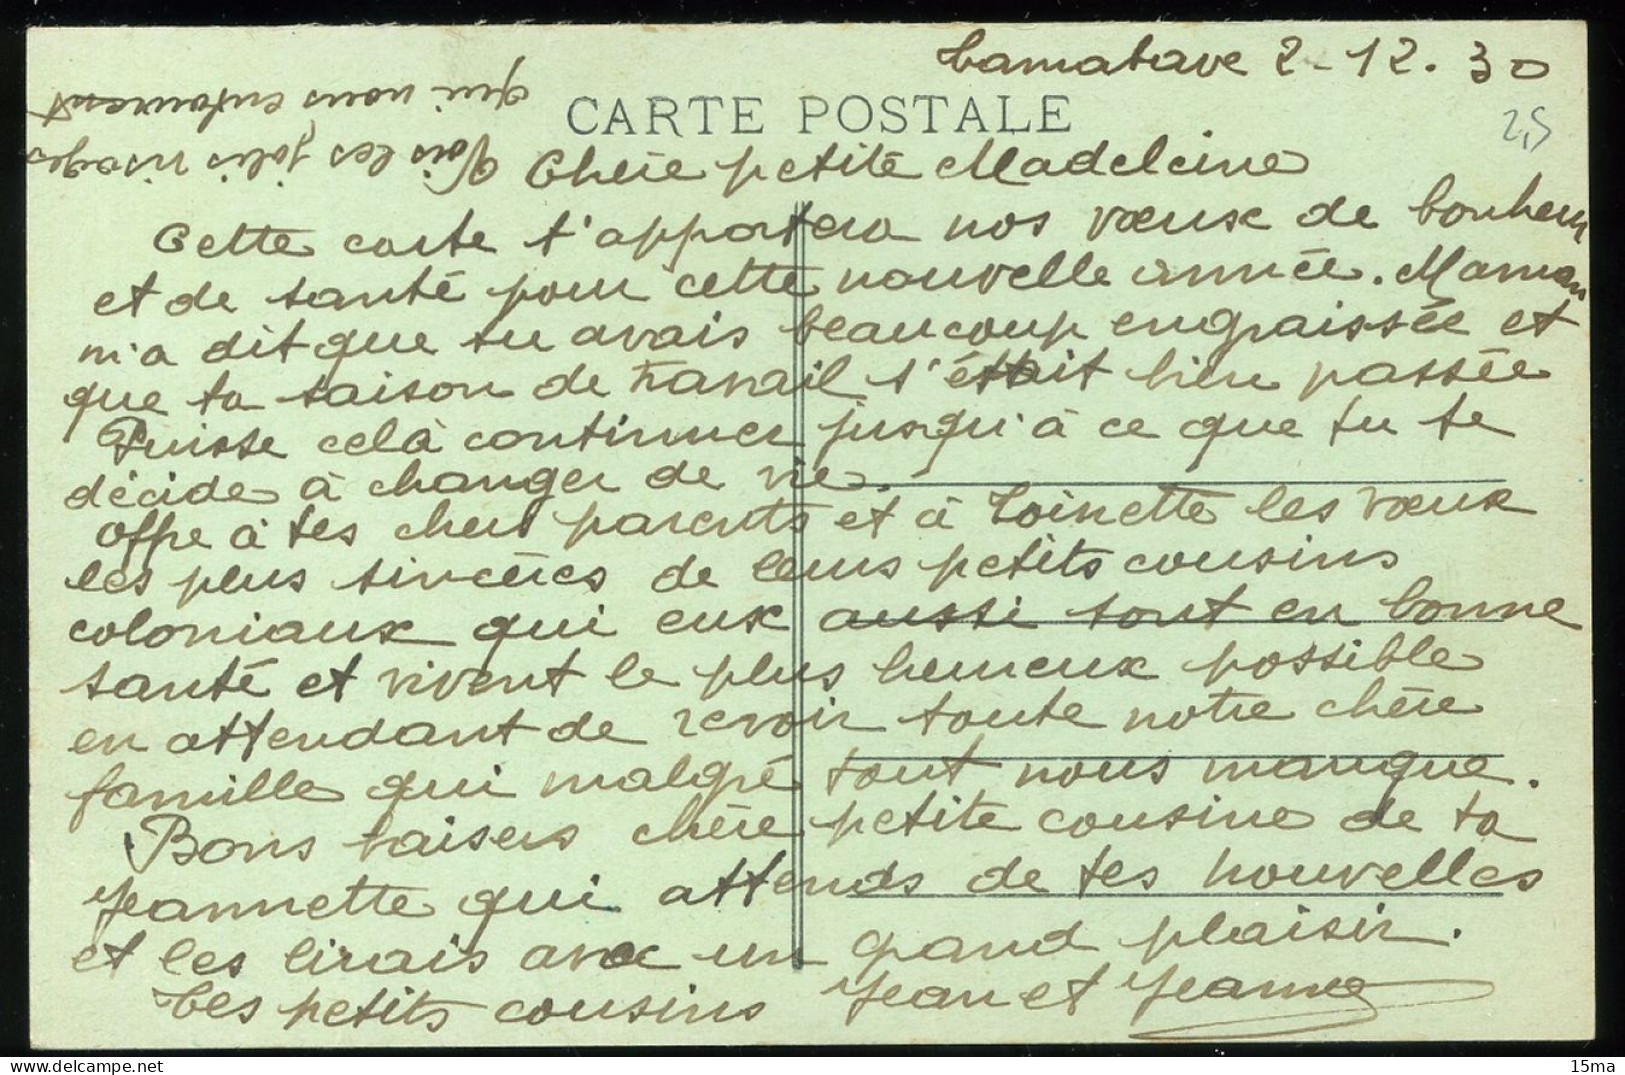 Tamatave 2-12.30
CARTE POSTALE
2,5
Vois les jolis visages
qui nous entourent
Chère petite Madeleine
Cette carte t'apportera nos vœux de bonheur
et de santé pour cette nouvelle année. Maman
m'a dit que tu avais beaucoup engraissée et
que ta saison de travail s'était bien passée
Puisse celà continuer jusqu'à ce que tu te
décide à changer de vie.
Offre à tes chers parents et à Toinette les vœux
les plus sincères de leurs petits cousins
coloniaux qui eux aussi sont en bonne
santé et vivent le plus heureux possible
en attendant de revoir toute notre chère
famille qui malgré tout nous manque.
Bons baisers chère petite cousine de ta
Jeannette qui attends de tes nouvelles
et les lirais avec un grand plaisir.
Tes petits cousins Jean et Jeanne
15ma